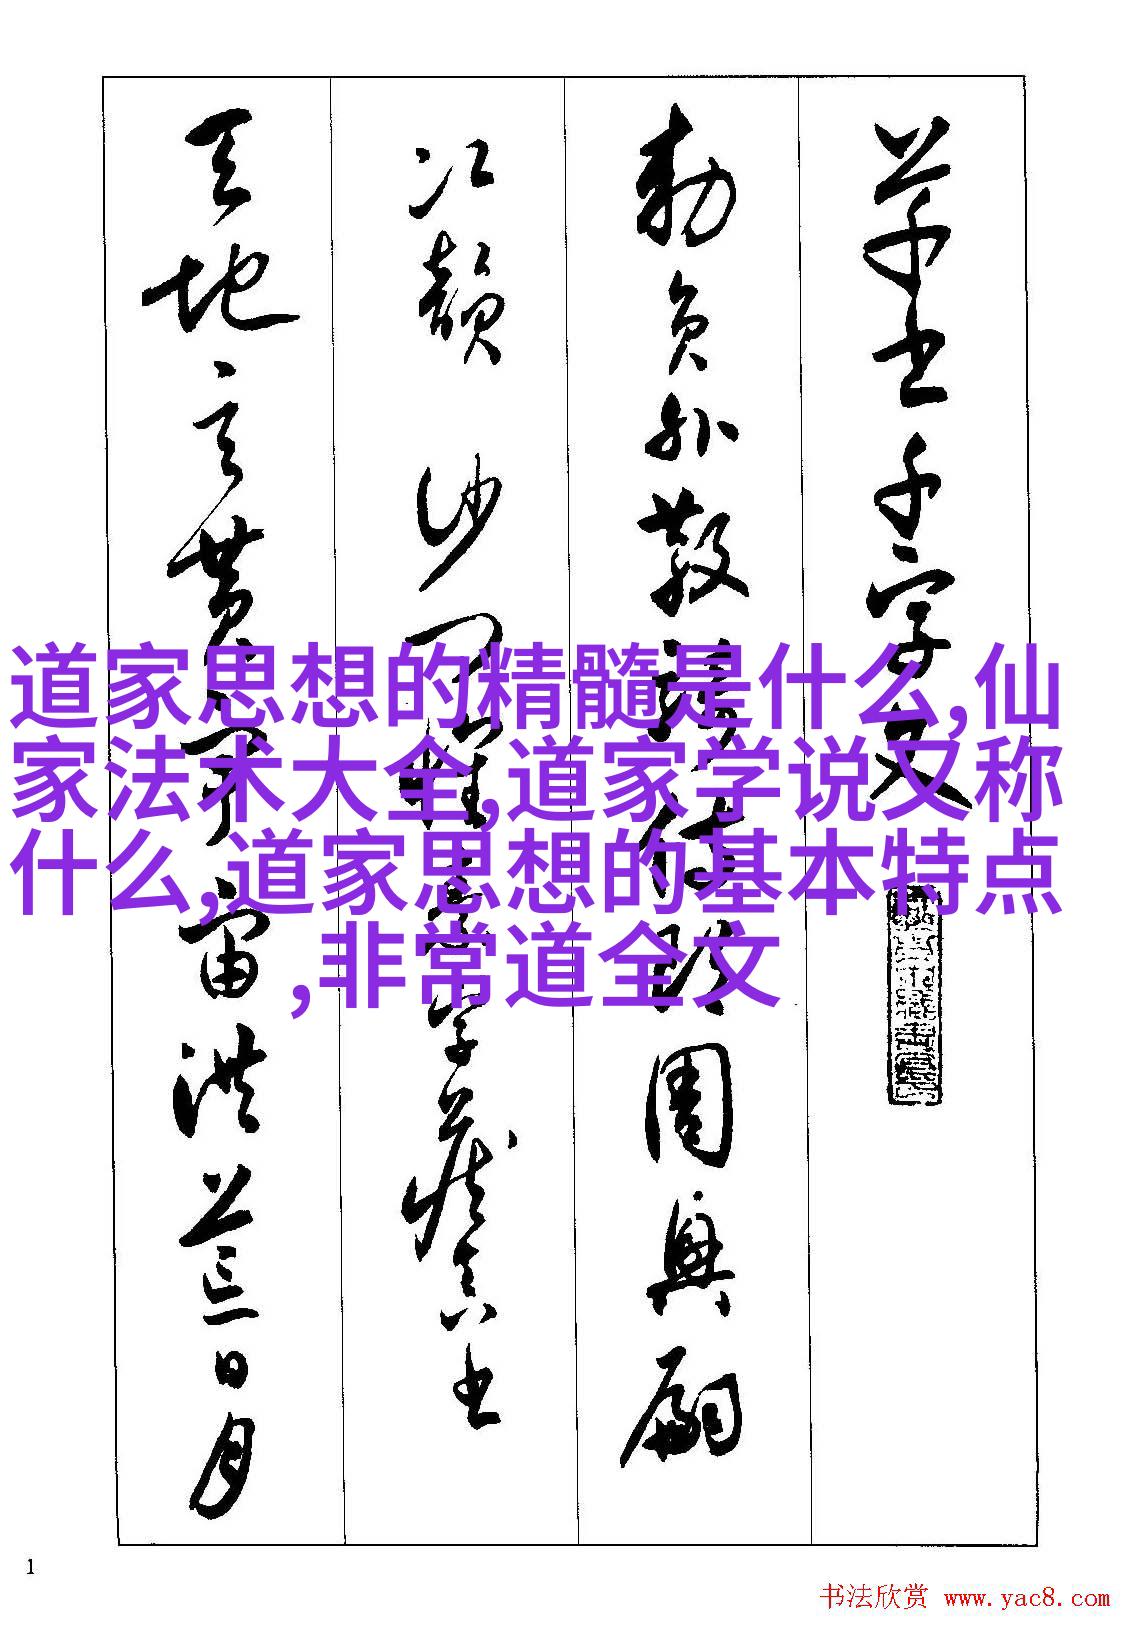 草書千字文
勅員外散騎侍郎周興嗣
次韻
天地玄黄宇宙洪荒日月
道家思想的精髓是什么,仙
家法术大全,道家学说又称
什么,道家思想的基本特点
,非常道全文
1
书法欣赏 www.yac8.com